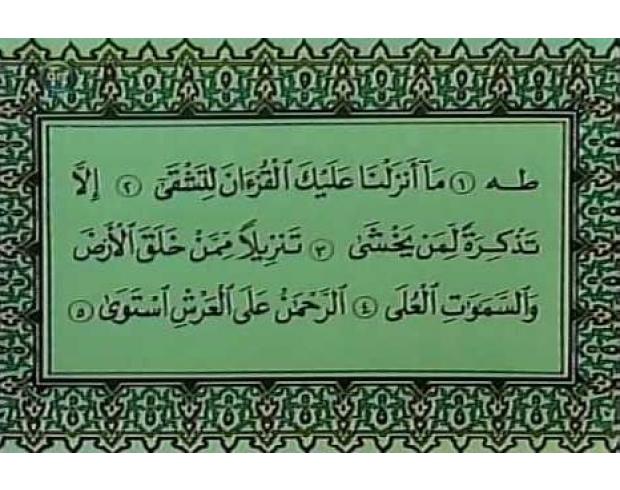 طه ١ مَآ أَنزَلْنَا عَلَيْكَ ٱلْقُرْءَانَ لِتَشْقَىٰٓ ٢ إِلَّا
تَذْكِرَةً لِّمَن يَخْشَىٰ ٣ تَنزِيلاً مِّمَّنْ خَلَقَ ٱلْأَرْضَ
وَٱلسَّمَٰوَٰتِ ٱلْعُلَى ٤ ٱلرَّحْمَٰنُ عَلَى ٱلْعَرْشِ ٱسْتَوَىٰ ٥